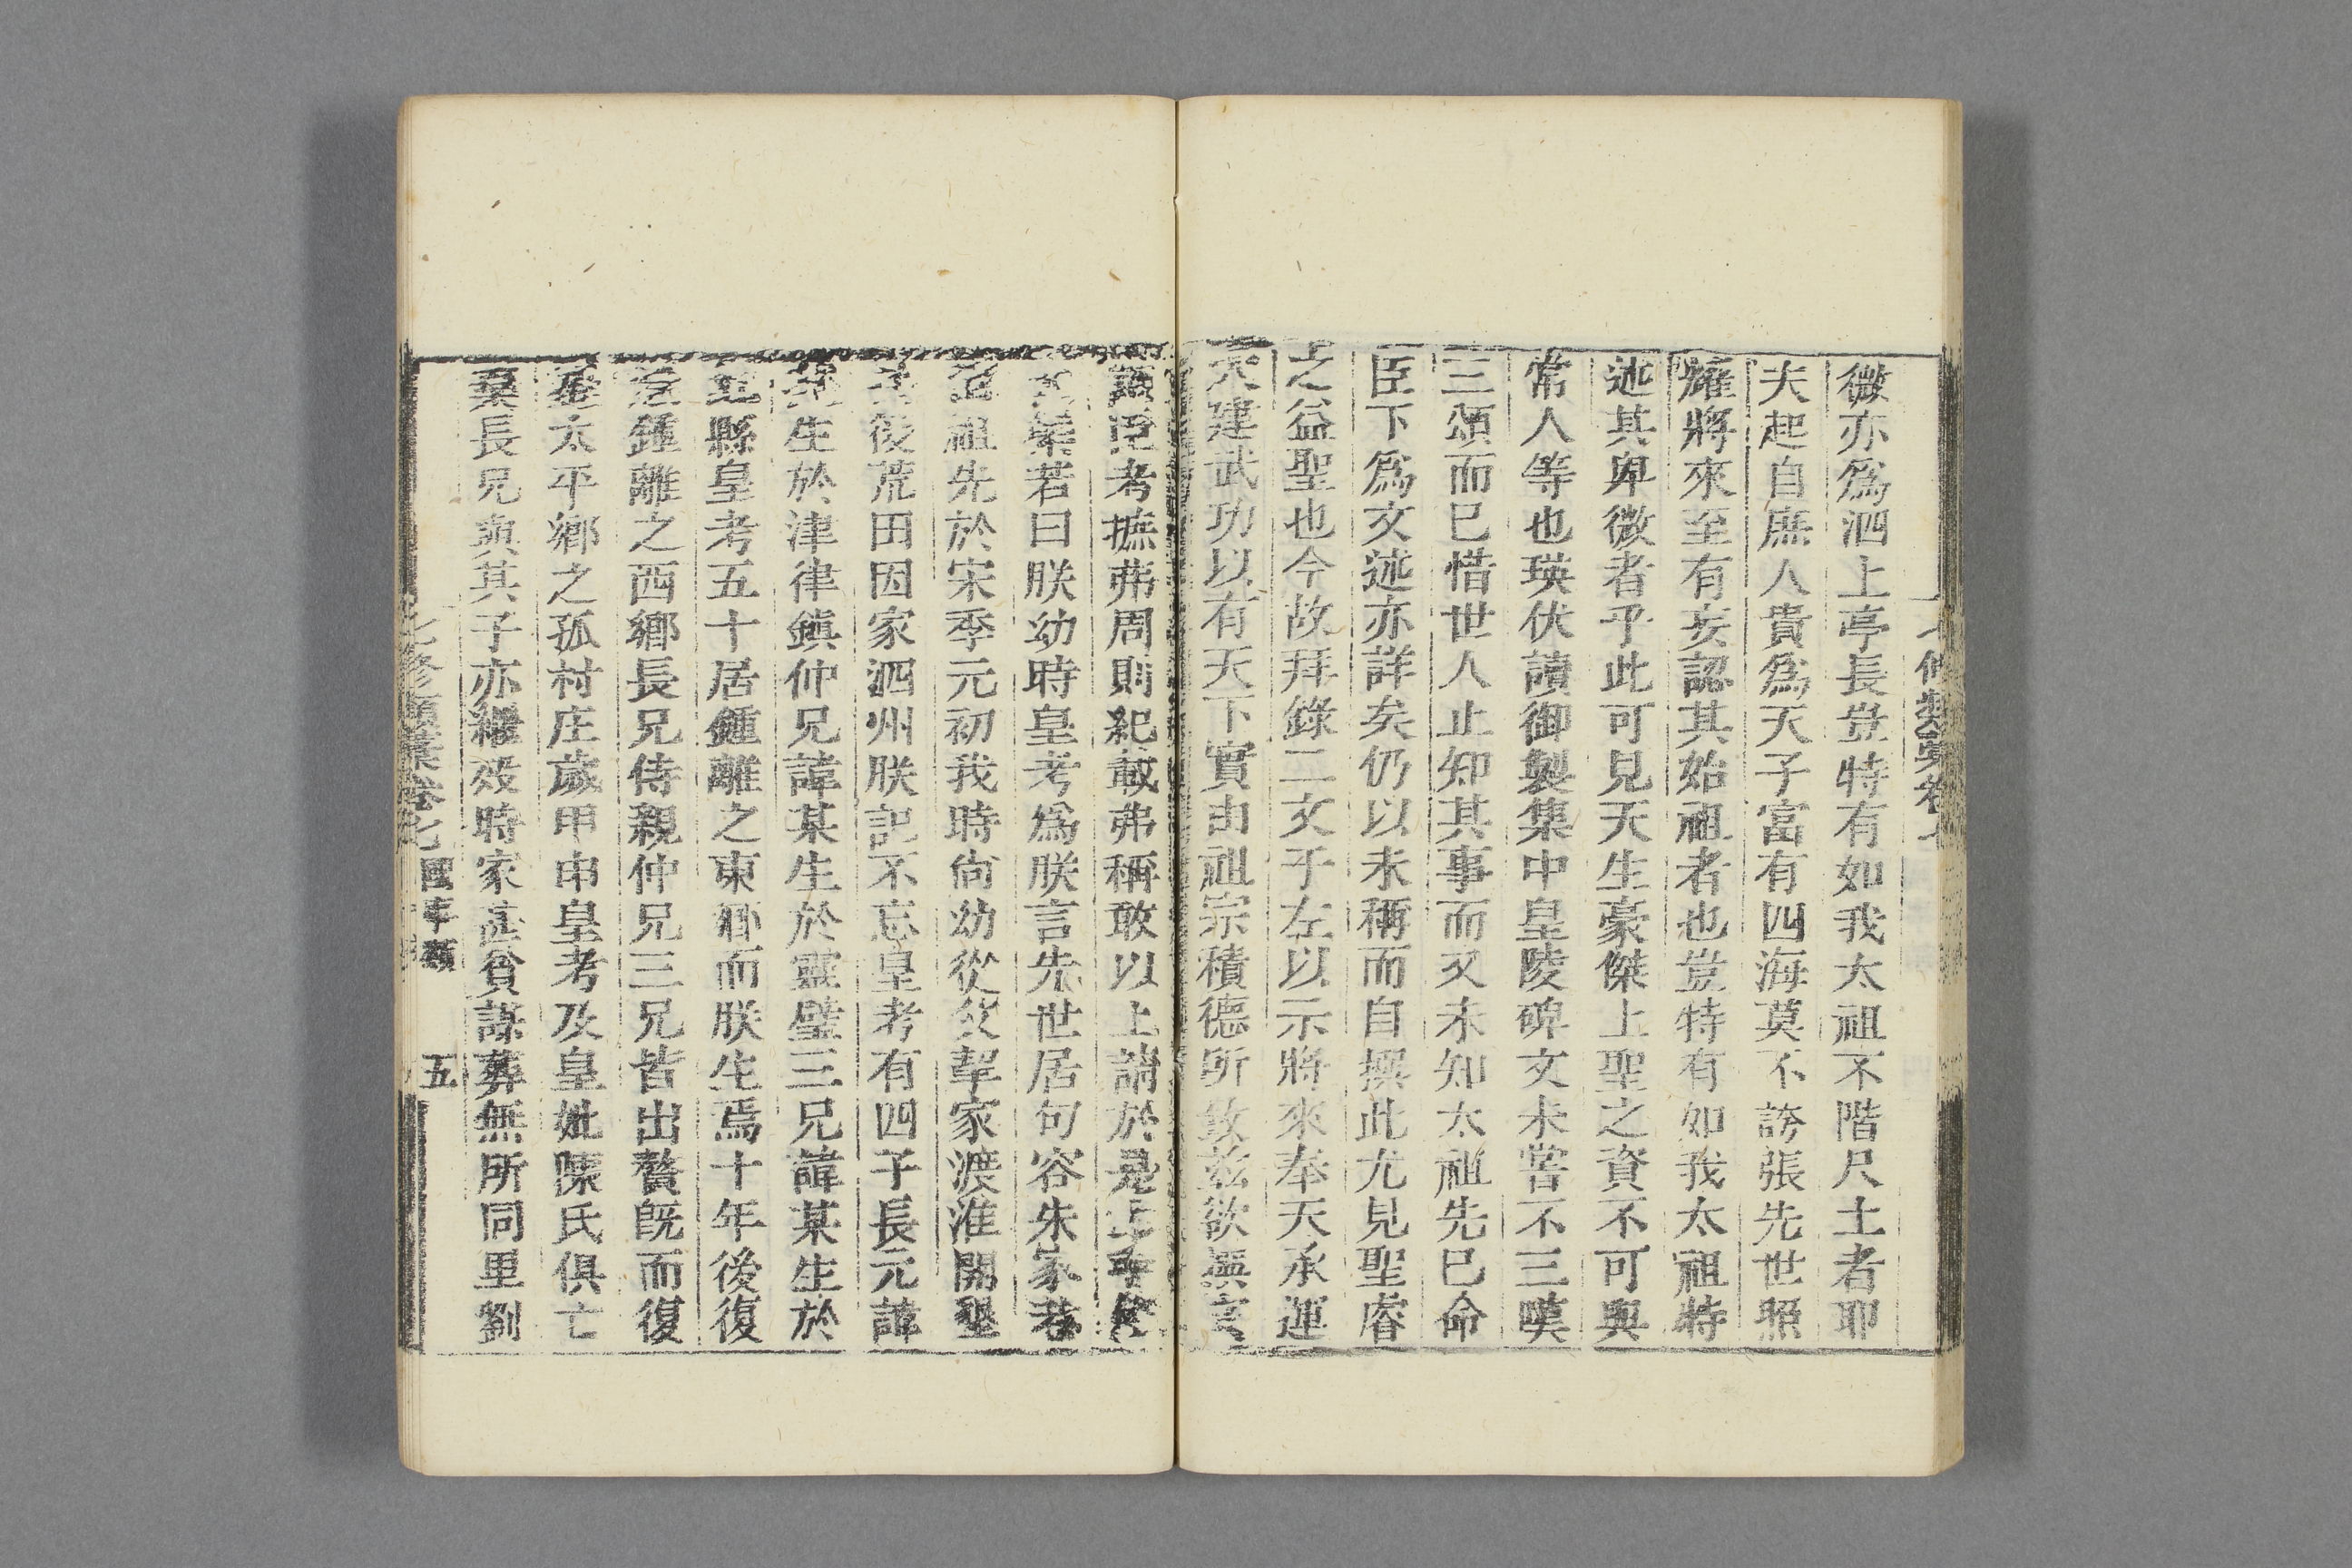 微亦爲泗上亭長豈特有如我太祖不階尺土者耶
夫起自庶人貴爲天子富有四海莫不誇張先世照
耀將來至有妄認其始祖者也豈特有如我太祖特
述其卑微者乎此可見天生豪傑上聖之資不可與
常人等也瑛伏讀御製集中皇陵碑文未嘗不三嘆
三頌而已惜世人止知其事而又未知太祖先已命
臣下爲文述亦詳矣仍以未稱而自撰此尤見聖睿
之益聖也今故拜錄二文于左以示將來奉天承運
大建武功以有天下實由祖宗積德所致兹欲撰言
考摭弗周則紀載弗稱敢以上請於是
若曰朕幼時皇考爲朕言先世居句容朱家巷
祖先於宋季元初我時尙幼從父挈家渡淮開墾
後荒田因家泗州朕記不忘皇考有四子長兄諱
生於津律鎭仲兄諱某生於靈璧三兄諱某生於
縣皇考五十居鍾離之東鄉而朕生焉十年後復
鍾離之西鄉長兄侍親仲兄三兄皆出贅旣而復
太平鄉之孤村庄歲甲申皇考及皇妣陳氏俱亡
棄長兄與其子亦繼歿時家甚貧謀葬無所同里劉
七修類藁卷七 國事類 五